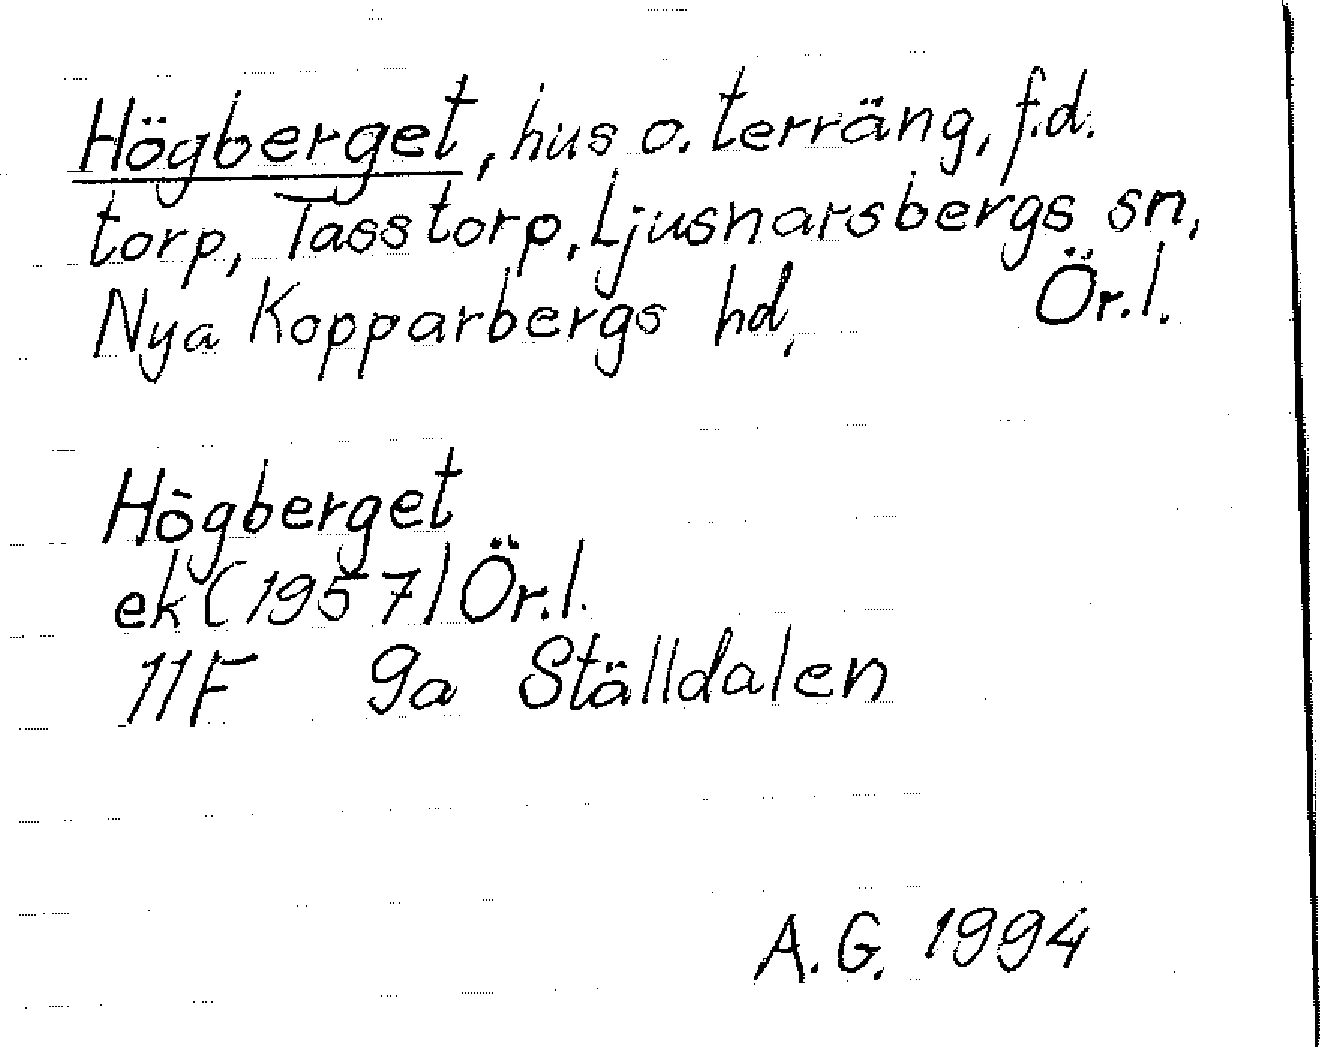 Högberget, hus o. terräng, f.d.
torp, Tasstorp, Ljusnarsbergs sn,
Nya Kopparbergs hd, Ör.l.
Högberget
ek (1957) Ör.l.
11F 9a Ställdalen
A.G. 1994